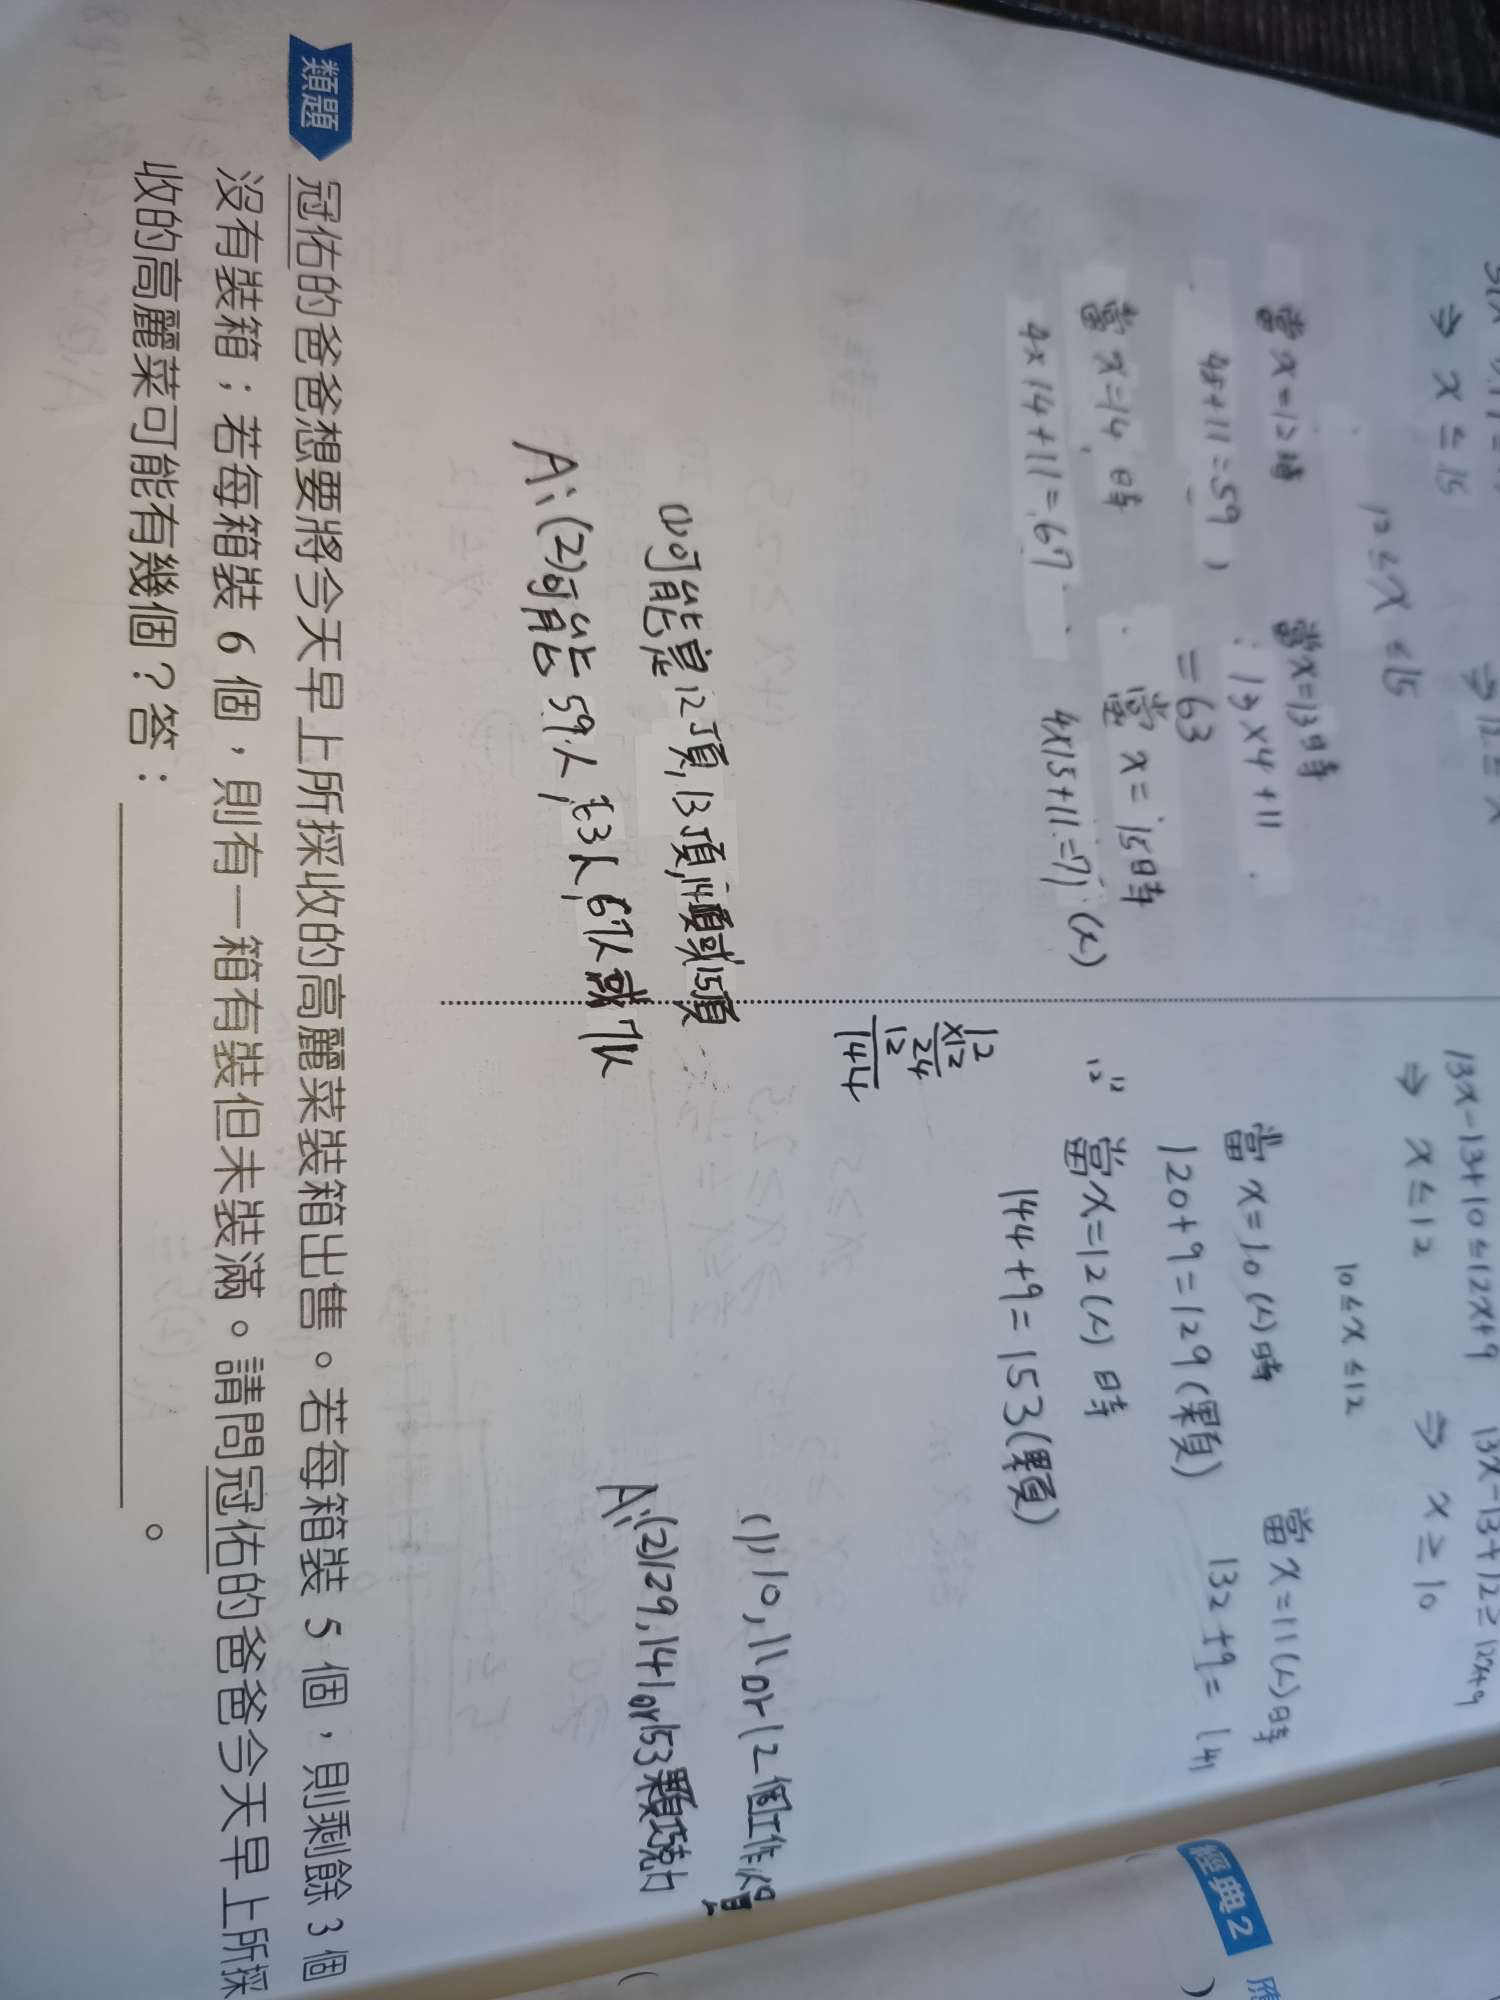 ⇒ x ≤ 15
12 ≤ x ≤ 15
當x=12時
當x=13時
48+11=59
13×4+11
=63
當x=14時
當x=15時
4×14+11=67
4×15+11=71(人)
(1)可能是12頂,13頂,14頂或15頂
A:(2)可能59人,63人,67人或71人
13x-13+10≤12x+9
13x-13+12≥12x+9
⇒ x≤12
⇒ x≥10
10≤x≤12
當x=10(人)時
當x=11(人)時
120+9=129(顆)
132+9=141
當x=12(人)時
12
×12
24
12
144
144+9=153(顆)
(1)10,11or12個工作人員
A:(2)129,141or153顆巧克力
類題
冠佑的爸爸想要將今天早上所採收的高麗菜裝箱出售。若每箱裝 5 個,則剩餘 3 個
沒有裝箱;若每箱裝 6 個,則有一箱有裝但未裝滿。請問冠佑的爸爸今天早上所採
收的高麗菜可能有幾個?答: 。
經典2